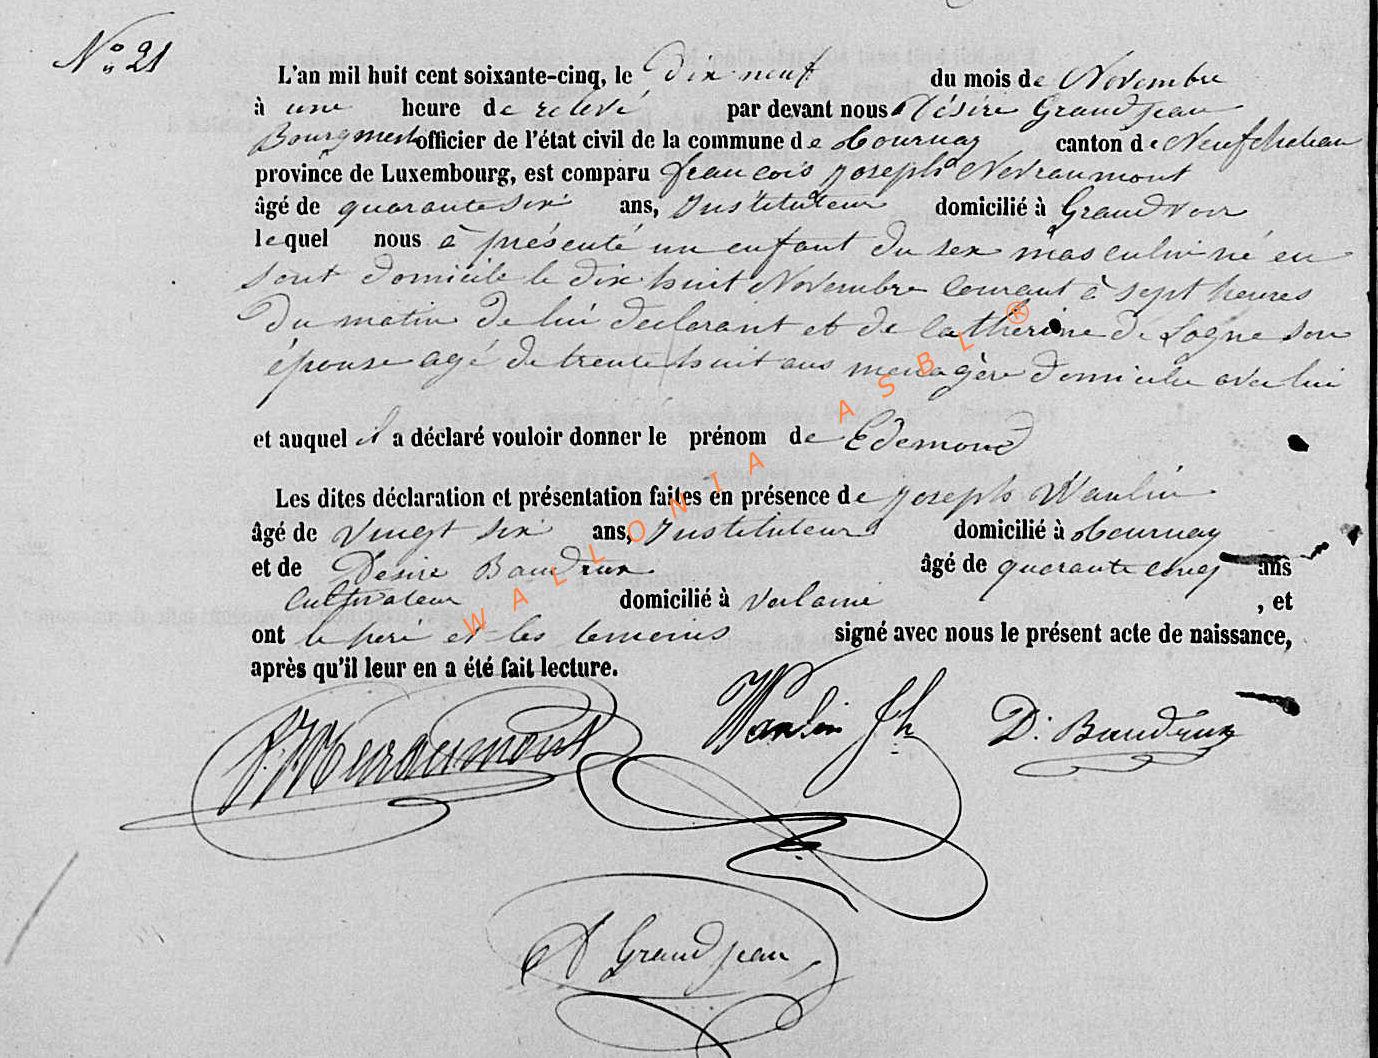 No 21
L'an mil huit cent soixante-cinq, le dix neuf du mois de Novembre
à une heure de relevé par devant nous Désiré Grandjean
Bourgmest officier de l'état civil de la commune de Tournay canton de Neufchateau
province de Luxembourg, est comparu francois joseph Nevraumont
âgé de quarante six ans, Instituteur domicilié à Grandvoir
lequel nous à présenté un enfant du sex masculin né en
sont domicile le dix huit Novembre Courant à sept heures
du matin de lui declarant et de Catherine de Logne son
épouse agé de trente huit ans menagère domicilie avec lui
et auquel il a déclaré vouloir donner le prénom de Edemond
Les dites déclaration et présentation faites en présence de joseph Wanlin
âgé de vingt six ans, Instituteur domicilié à Tournay
et de Desire Baudrux âgé de quarante cinq ans
Cultivateur domicilié à Verlaine , et
ont le peré et les temoins signé avec nous le présent acte de naissance,
après qu'il leur en a été fait lecture.
F. J Nevraumont Wanlin Jh D. Baudrux
D Grandjean
WALLONIA ASBL ®